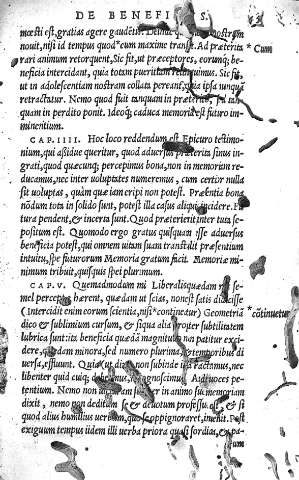 DE BENEFI S.
mœsti est, gratias agere gaudētem. nostram
nouit, nisi id tempus quod cum maxime transit. Ad præterita
rari animum retorquent, Sic fit, ut præceptores, eorunq; be-
neficia intercidant, quia totam pueritiam relinquimus. Sic fit,
ut in adolescentiam nostram collata pereant, quia ipsa nunquā
retractatur. Nemo quod fuit tanquam in præterito, sed tan-
quam in perdito ponit. Ideoq; caduca memoria est futuro im-
minentium.
CAP. IIII. Hoc loco reddendum est Epicuro testimo-
nium, qui assidue queritur, quod aduersus præterita simus in-
grati, quod quæcunq; percepimus bona, non in memoriam re-
ducamus, nec inter uoluptates numeremus, cum certior nulla
sit uoluptas, quàm quæ iam eripi non potest. Præsentia bona
nōdum tota in solido sunt, potest illa casus aliquis incidere. Fu
tura pendent, & incerta sunt. Quod præterijt inter tuta se-
positum est. Quomodo ergo gratus quisquam esse aduersus
beneficia potest, qui omnem uitam suam transilit præsentium
intuitu, spe futurorum Memoria gratum facit. Memoriæ mi-
nimum tribuit, quisquis spei plurimum.
CAP. V. Quemadmodum mi Liberalis quædam
semel percepta hærent, quædam ut scias, non est satis didicisse
(Intercidit enim eorum scientia, nisi continetur) Geometria
dico & sublimium cursum, & siqua alia propter subtilitatem
lubrica sunt: ita beneficia quædā magnitudo non patitur excide
re, quædam minora, sed numero plurima, & temporibus di
uersa, effluunt. Quia ut dixi non subinde illa tractamus, nec
libenter quid cuiq; debeamus recognoscimus. Audi uoces pe-
tentium. Nemo non uicturam semper in animo suo memoriam
dixit, nemo non deditum se & deuotum professus est, & si
quod aliud humilius uerbum, quo se oppignoraret, inuenit. Post
exiguum tempus ijdem illi uerba priora quasi sordida, & pa-
rum
Cum
cōtinuetur